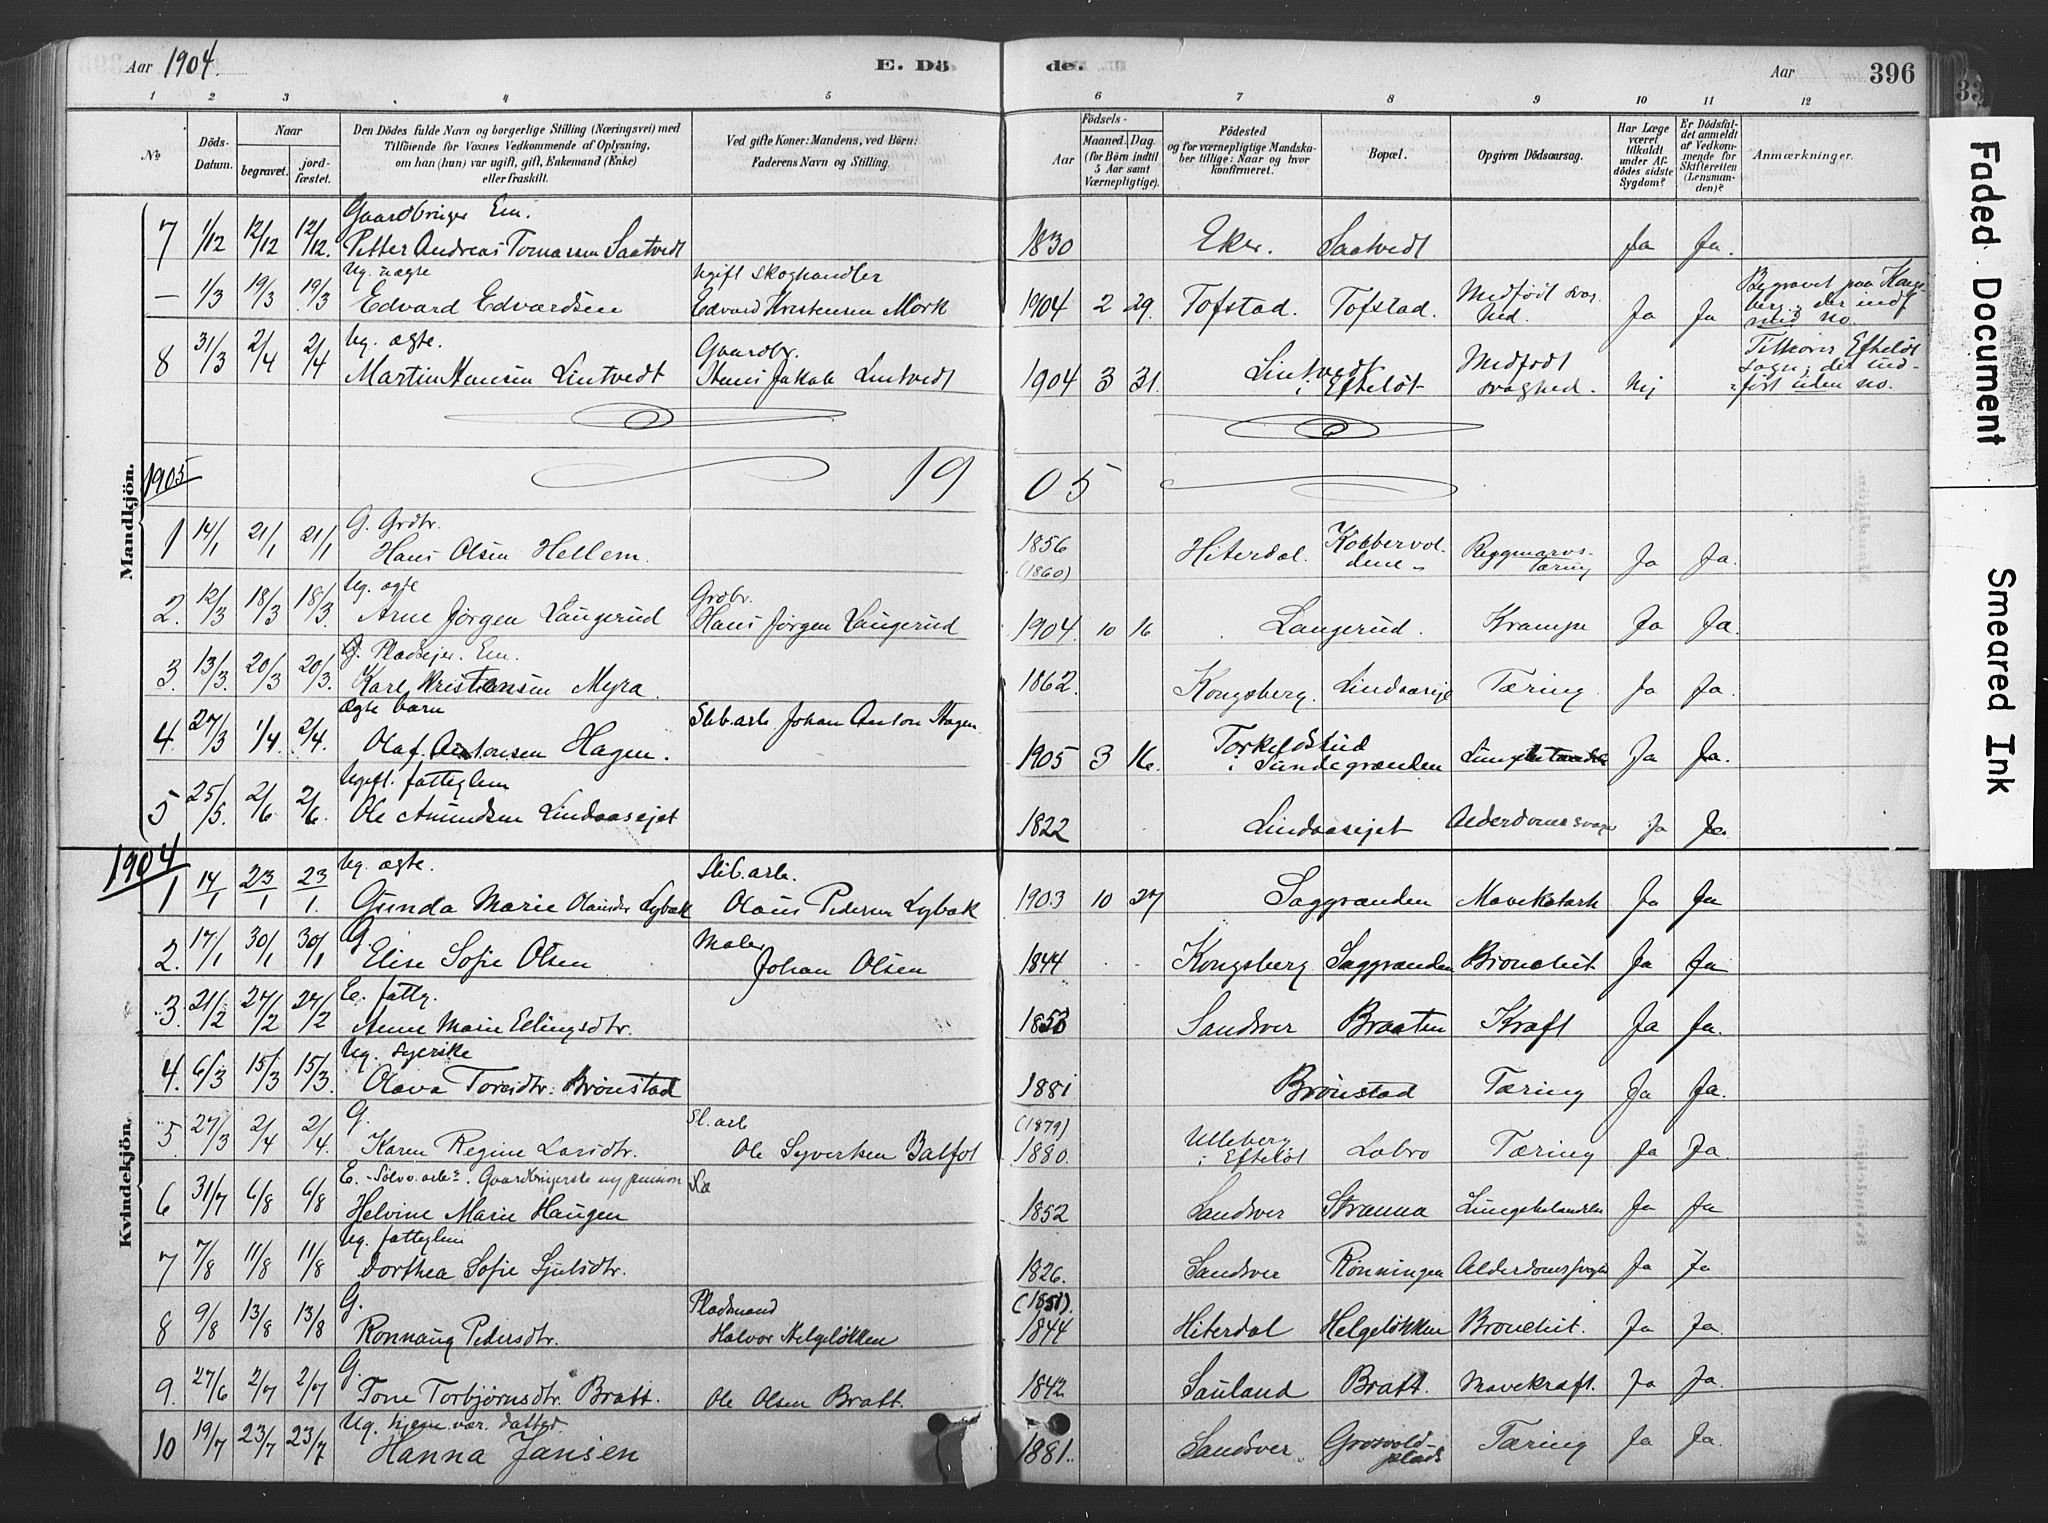 Aar 1904. E. Dö de. Aar 396
1 2 3 4 5 6 7 8 9 10 11 12
No Döds-Datum. Naar begravet. jord-fæstet. Den Dödes fulde Navn og borgerlige Stilling (Næringsvei) med Tilföiende for Voxnes Vedkommende af Oplysning, om han (hun) var ugift, gift, Enkemand (Enke) eller fraskilt. Ved gifte Koner: Mandens, ved Börn: Faderens Navn og Stilling. Födsels- Aar Maaned. Dag. (for Börn indtil 5 Aar samt Værnepligtige). Födested og for værnepligtige Mandskaber tillige: Naar og hvor konfirmeret. Bopæl. Opgiven Dödsaarsag. Har Læge været tilkaldt under Afdödes sidste Sygdom? Er Dödsfaldet anmeldt af Vedkommende for Skifteretten (Lensmanden)? Anmærkninger.
Mandkjön.
Gaardbruger Em.
7 1/12 12/12 12/12. Petter Andreas Tomassen Saatvedt 1830 Eker. Saatvedt Ja Ja.
Ug. uægte Ugift skoghandler
— 1/3 19/3 19/3 Edvard Edvardsen Edvard Kristensen Mørk 1904 2 29. Tofstad. Tofstad. Medfødt svaghed. Ja Ja Begravet paa Kongsberg; der indf med no.
Ug. ægte. Gaardbr.
8 31/3 2/4 2/4 Martin Hansen Lintvedt Hans Jakob Lintvedt 1904 3 31. Lintvedt i Efteløt Medfødt svaghed. Nej Tilhører Efteløt Sogn; der indført uden no.
1905 19 05
G. Grdbr.
1 14/1 21/1 21/1 Hans Olsen Hellem. 1856 (1860) Hiterdal Kobbervoldene Ryggmarvstæring Ja Ja.
Ug. ægte Grdbr.
2. 12/3 18/3 18/3. Arne Jørgen Langerud Hans Jørgen Langerud 1904. 10 16 Langerud. Krampe Ja Ja.
G. Pladsejer. Em.
3. 13/3. 20/3 20/3. Karl Kristensen Myra. 1862. Kongsberg. Lindaaseje Tæring. Ja Ja.
Ægte barn Slib.arb. Johan Anton Hagen
4. 27/3 1/4. 2/4. Olaf. Antonsen Hagen. 1905 3 16. Torkildslud i Sundegrænden Ja Ja.
Ugift. fatteglem
5 25/5. 2/6 2/6. Ole Amundsen Lindaasejet 1822 Lindaasejet Alderdomssvagh Ja Ja.
Kvindekjön.
1904
Ug. ægte. Slib.arb.
1 14/1 23/1 23/1. Gunda Marie Olausdtr Lybæk Olaus Pedersen Lybæk 1903 10 27 Saggrænden Mavekatarh Ja Ja
G. Maler
2. 17/1 30/1 30/1 Elise Sofie Olsen Johan Olsen 1844 Kongsberg Saggrænden Bronchit. Ja Ja
E. fattig.
3. 21/2 27/2 27/2 Anne Marie Ellingsdtr. Sandsver Braaten Kræft Ja Ja.
Ug. syerske
4. 6/3 15/3 15/3. Olava Toresdtr: Brønstad 1881 Brønstad Tæring Ja Ja.
G. Sl.arb
5. 27/3 2/4 2/4. Karen Regine Larsdtr. Ole Syvertsen Balfot (1879) 1880. Ulleberg i Efteløt Labro Tæring Ja Ja.
E. Sølvv.arb. Gaardbrugerske og pension
6 31/7 6/8 6/8 Helvine Marie Haugen 1852 Sandsver Stranna Lungebetændelse Ja Ja
Ug. fatteglem
7 7/8 11/8 11/8 Dorthea Sofie Sjulsdtr. 1826. Sandsver Rønningen Alderdomssvagh Ja Ja
G. Pladsmand
8 9/8 13/8 13/8 Ronnaug Pedersdtr. Halvor Helgeløkken (1851). 1844 Hiterdal Helgeløkken Bronchit. Ja Ja.
G.
9. 27/6 2/7 2/7. Tone Torbjørnsdtr. Bratt. Ole Olsen Bratt. 1842 Sauland Bratt. Mavekræft. Ja Ja.
Ug. hjemmevær. datter
10 19/7 23/7 23/7 Hanna Jansen 1881. Sandsver Grosvoldplads Tæring Ja Ja.
Faded Document
Smeared Ink